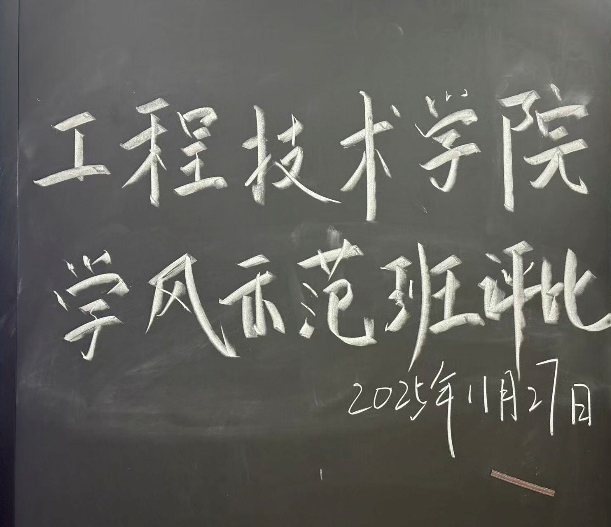 工程技术学院
学风示范班评比
2025年11月27日